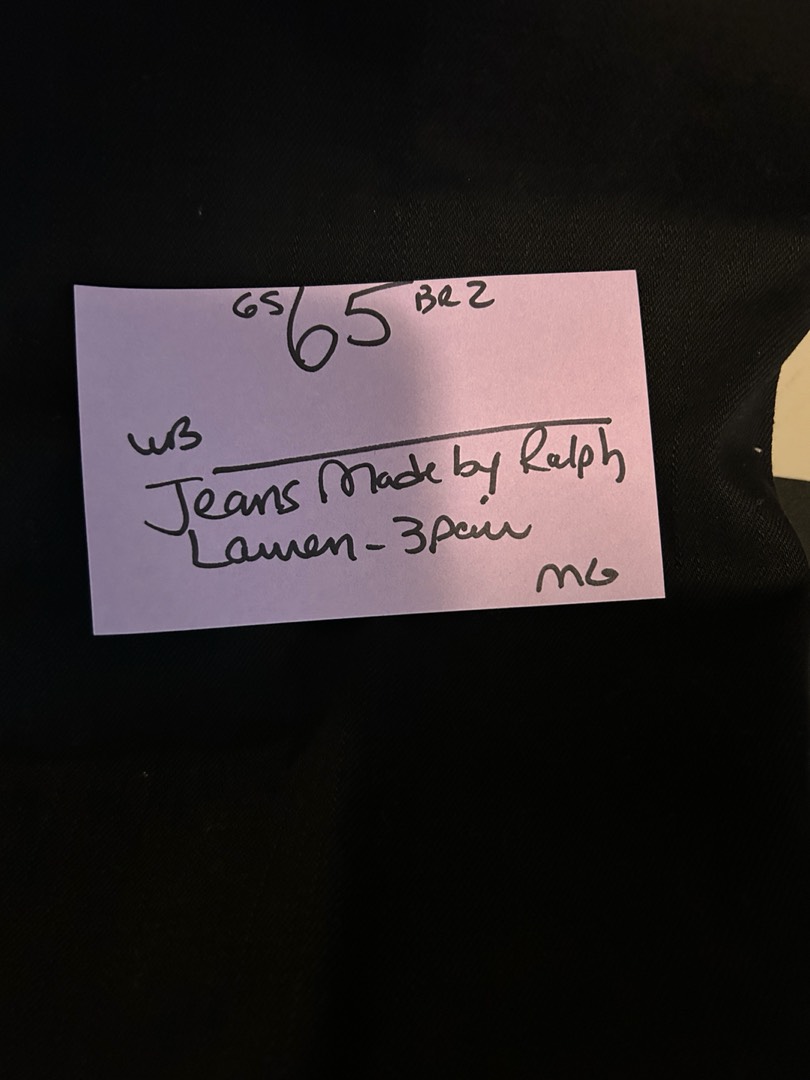 GS 65 BR2
WB
Jeans Made by Ralph
Lauren - 3 pair
MG